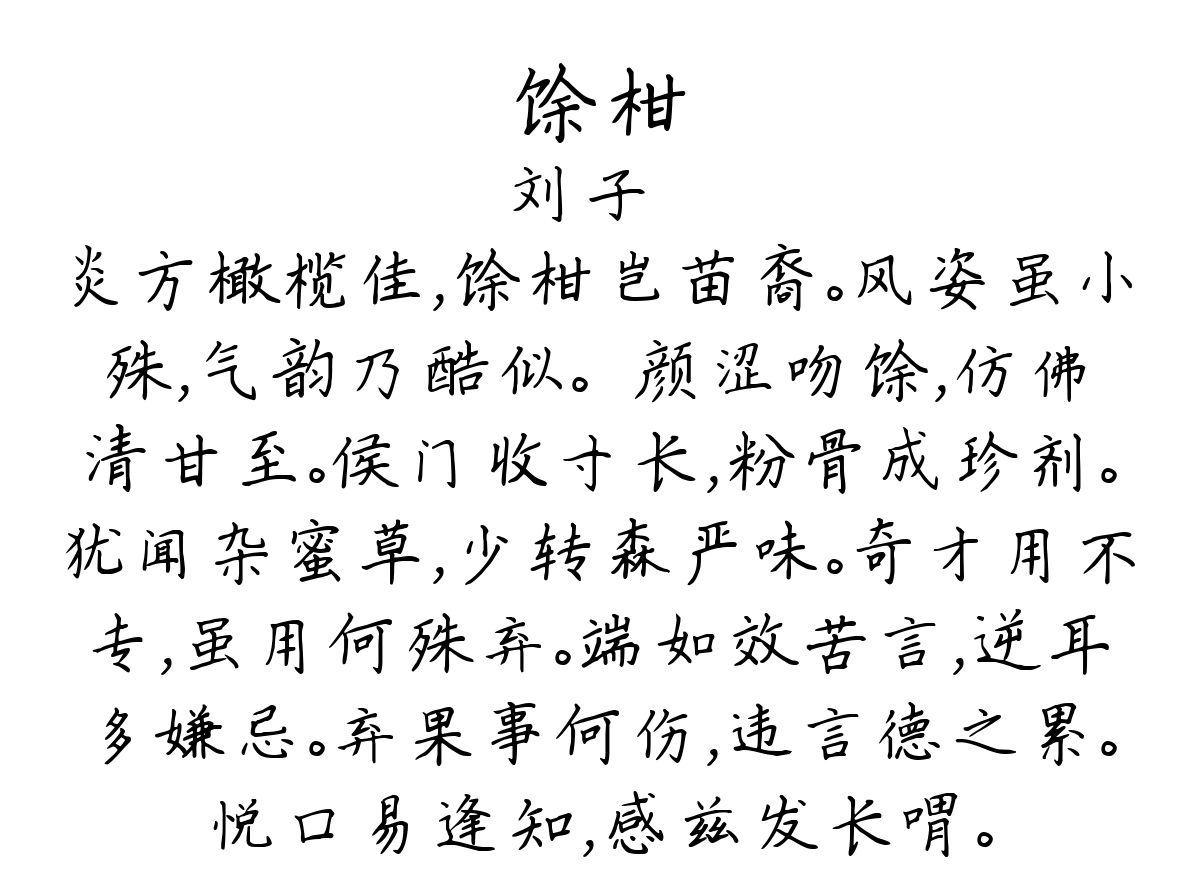 馀柑
刘子
炎方橄榄佳,馀柑岂苗裔。风姿虽小
殊,气韵乃酷似。颜涩吻馀,仿佛
清甘至。侯门收寸长,粉骨成珍剂。
犹闻杂蜜草,少转森严味。奇才用不
专,虽用何殊弃。端如效苦言,逆耳
多嫌忌。弃果事何伤,违言德之累。
悦口易逢知,感兹发长喟。